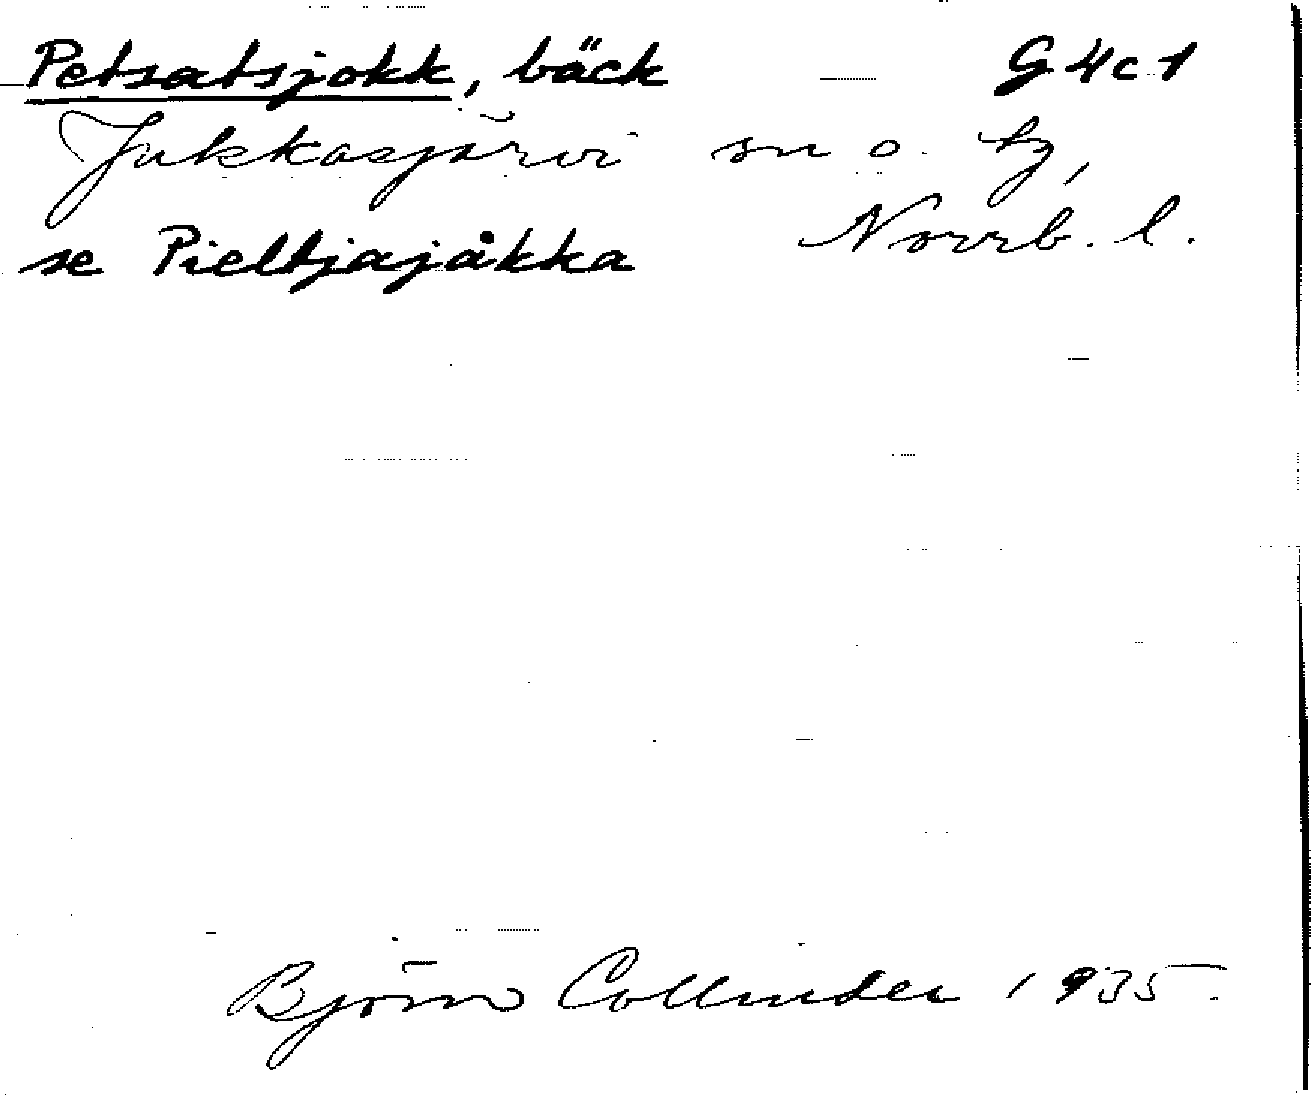 Petsatsjokk, bäck G4c1
Jukkasjärvi sn o. tg,
se Pieltjajåkka Norrb. l.
Björn Collinder 1935.